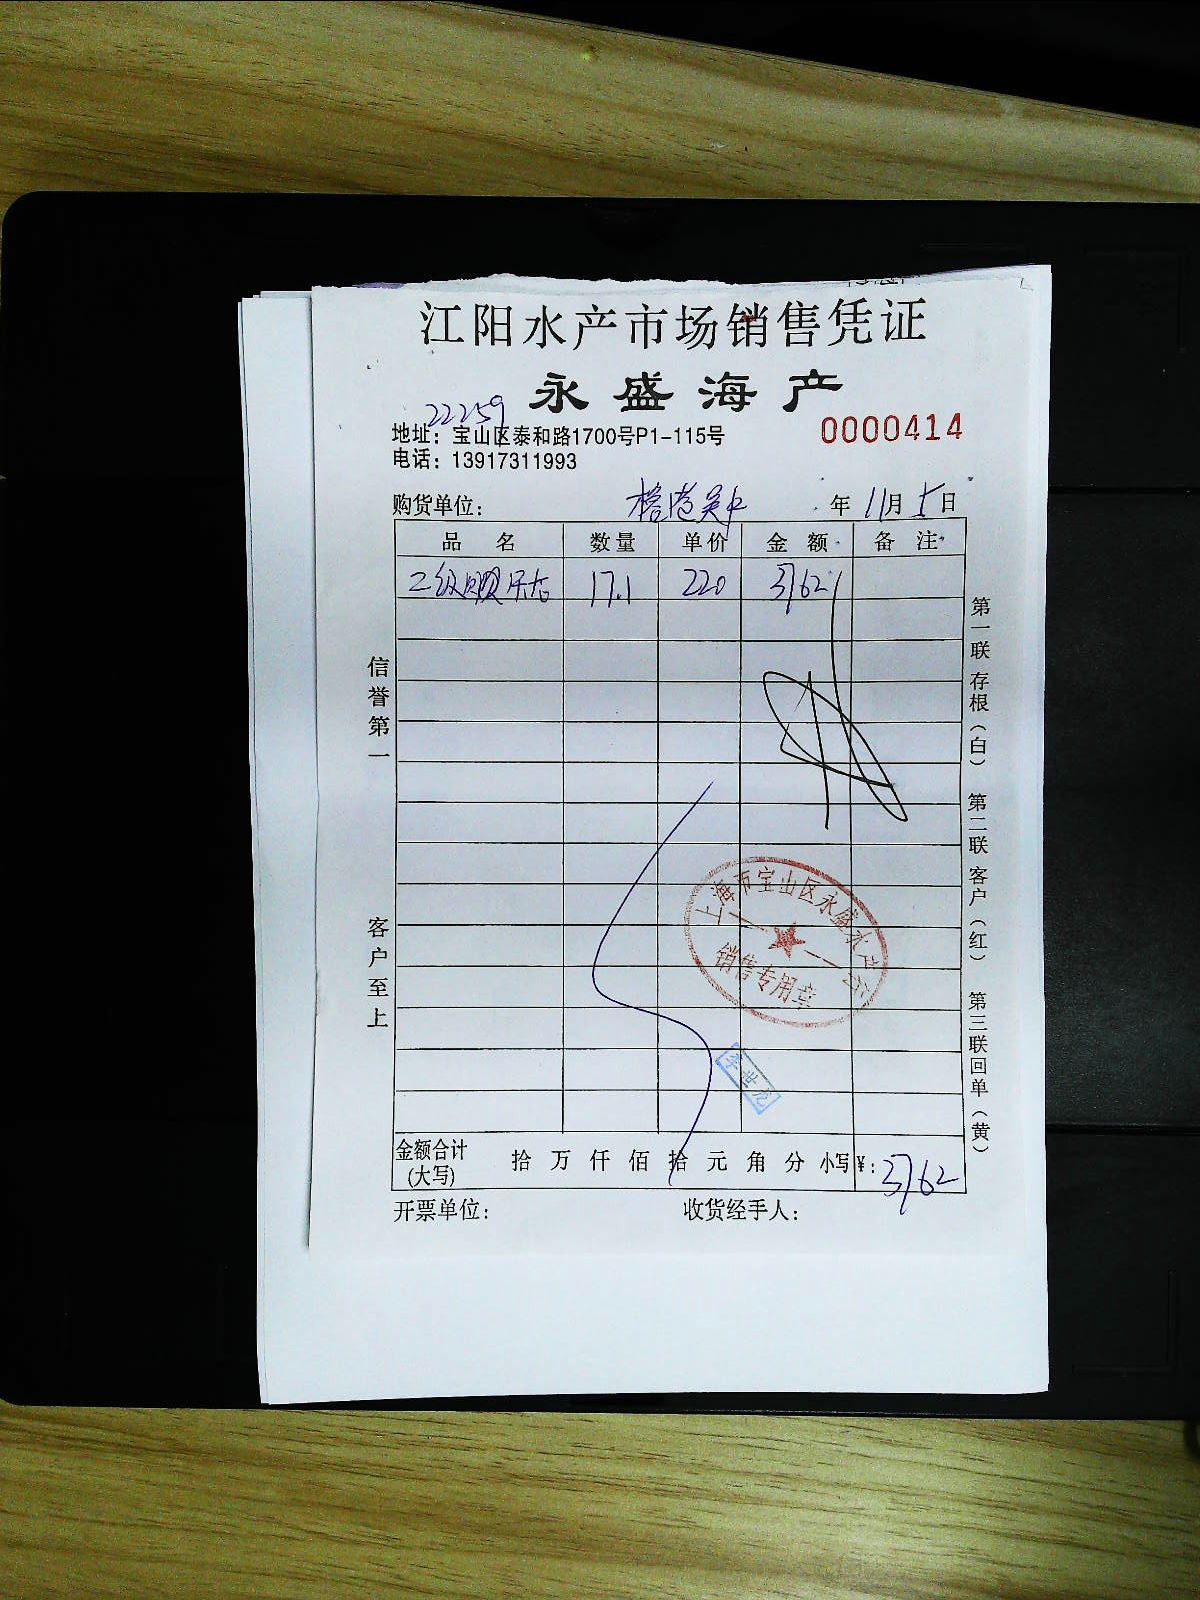 江阳水产市场销售凭证
永盛海产
22259
0000414
地址：宝山区泰和路1700号P1-115号
电话：13917311993
购货单位：
年 11月 5日
品名 数量 单价 金额 备注
17.1 220 3762
信誉第一
客户至上
第一联 存根（白） 第二联 客户（红） 第三联 回单（黄）
上海市宝山区永盛水产
销售专用章
李世龙
金额合计
(大写)
拾 万 仟 佰 拾 元 角 分 小写¥：3762
开票单位： 收货经手人：